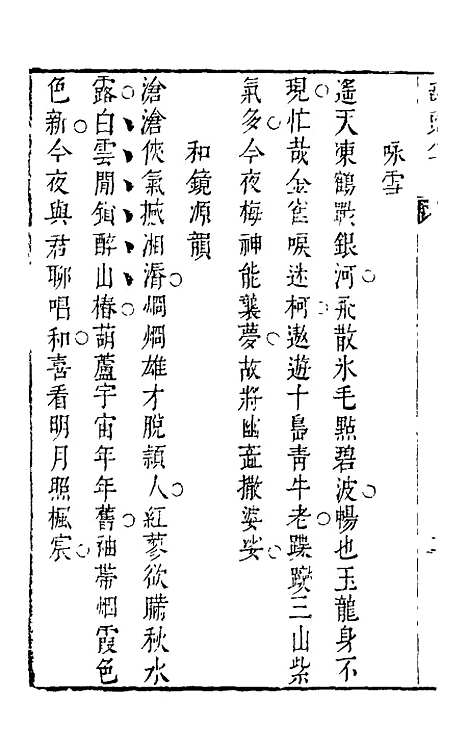 咏雪
遙天凍鶴點銀河飛散氷毛點碧波暢也玉龍身不
現忙哉金雀唳迷柯遨遊十島青牛老蹀躞三山紫
氣多今夜梅神能襄夢故將幽蓋撒婆娑
和鏡源韻
滄滄俠氣撼湘漘烱烱雄才脫穎人紅蓼欲購秋水
露白雲閒銷醉山椿葫蘆宇宙年年舊袖帶烟霞色
色新今夜與君聊唱和喜看明月照楓宸